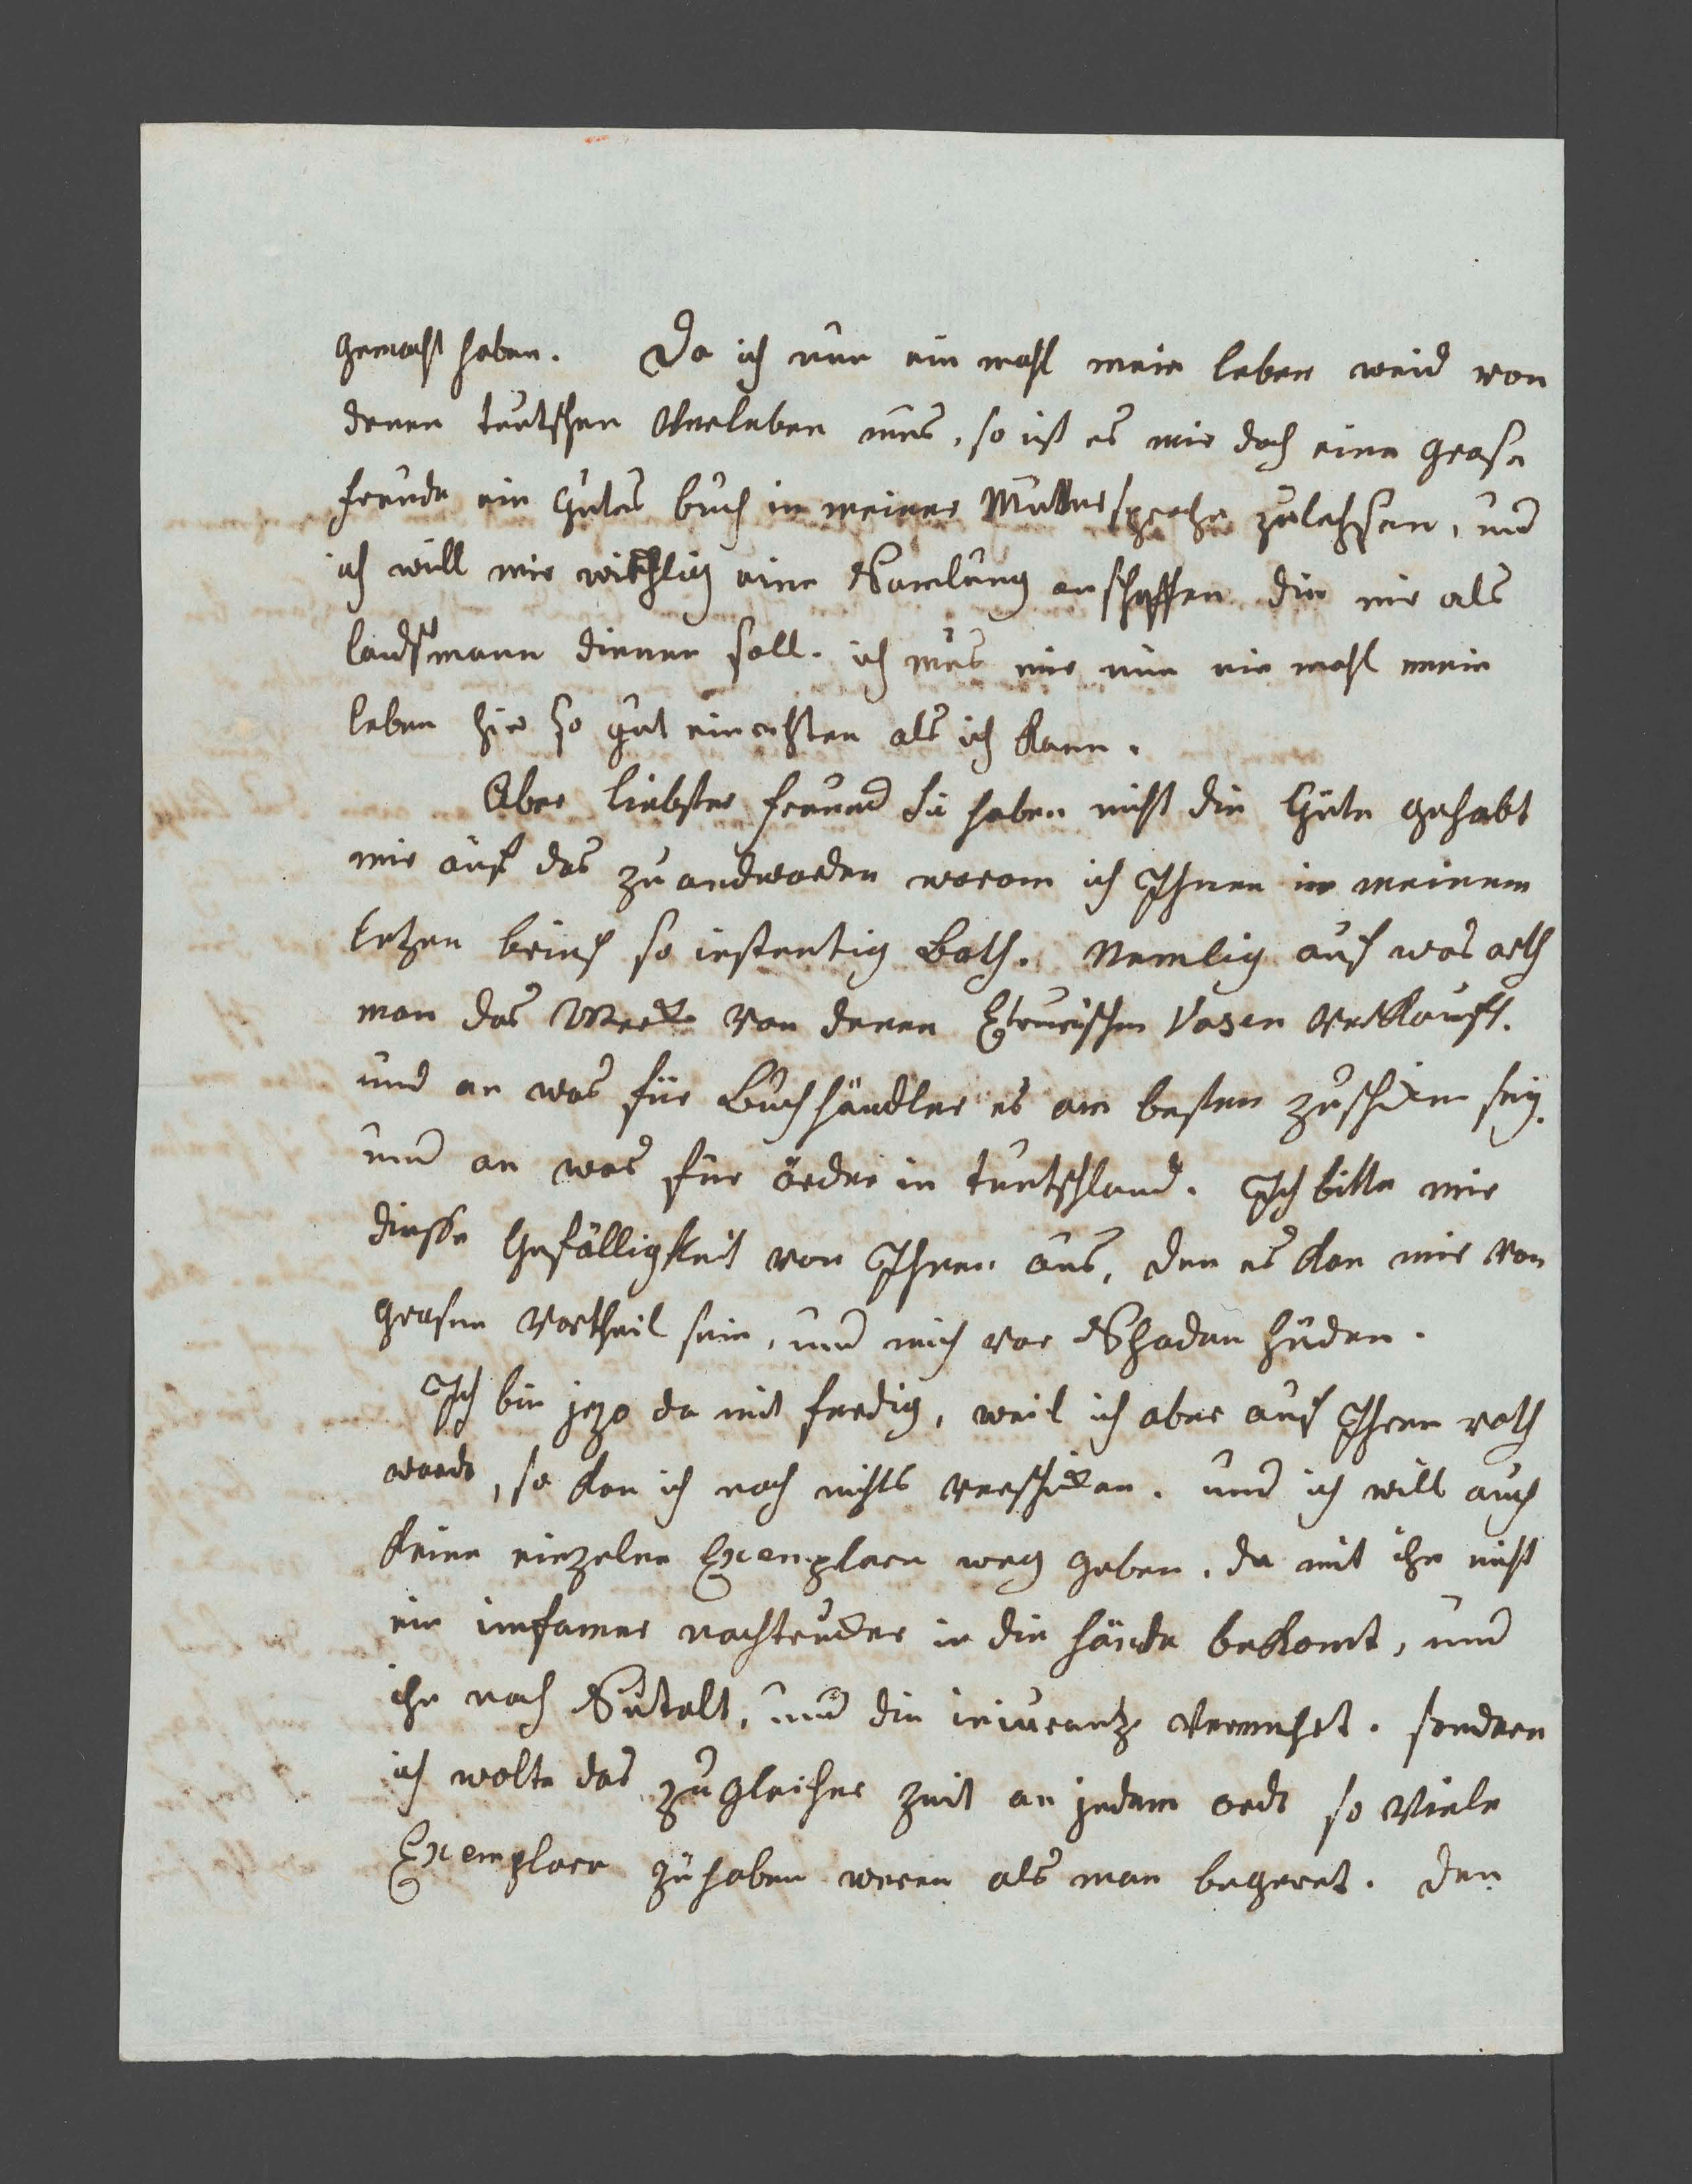 gemacht haben. Da ich nun ein mahl mein leben weid von
denen teutschen Verleben mus, so ist es mir doch eine grose
freude ein Gutes buch in meiner Muttersprache zulehsen, und
ich will mir wirchlig eine Samlung anschaffen die mir als
landsmann dienen soll. ich mus mir nun ein mahl mein
leben hir so gut einrichten als ich kann.
Aber liebster freund sie haben nicht die Güte gehabt
mir auf das zu andworden warom ich Ihnen in meinem
letzen brief so instentig bath. Nemlig auf was arth
man das Werck von denen Etrurischen Vasen Verkauft.
und an was für Buchhändler es am besten zuschicken sey.
und an was für örder in teutschland. Ich bitte mir
diesse Gefälligkeit von Ihnen aus, den es kan mir von
grosem Vortheil sein, und mich vor Schaden hüden.
Ich bin jezo da mit ferdig, weil ich aber auf Ihren rath
warde, so kan ich noch nichts verschicken. und ich will auch
keine einzelne Exemplare weg geben. da mit ihn nicht
ein imfamer nachtrucker in die hände bekomt, und
ihn nach Sutelt, und die  Vermehrt. sondern
ich wolte das zu gleicher zeit an jedem ord so Viele
Exemplare zu haben weren als man begeret. den